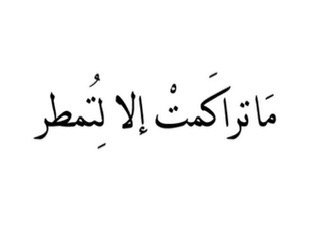 مَا تراكَمتْ إلا لِتُمطر